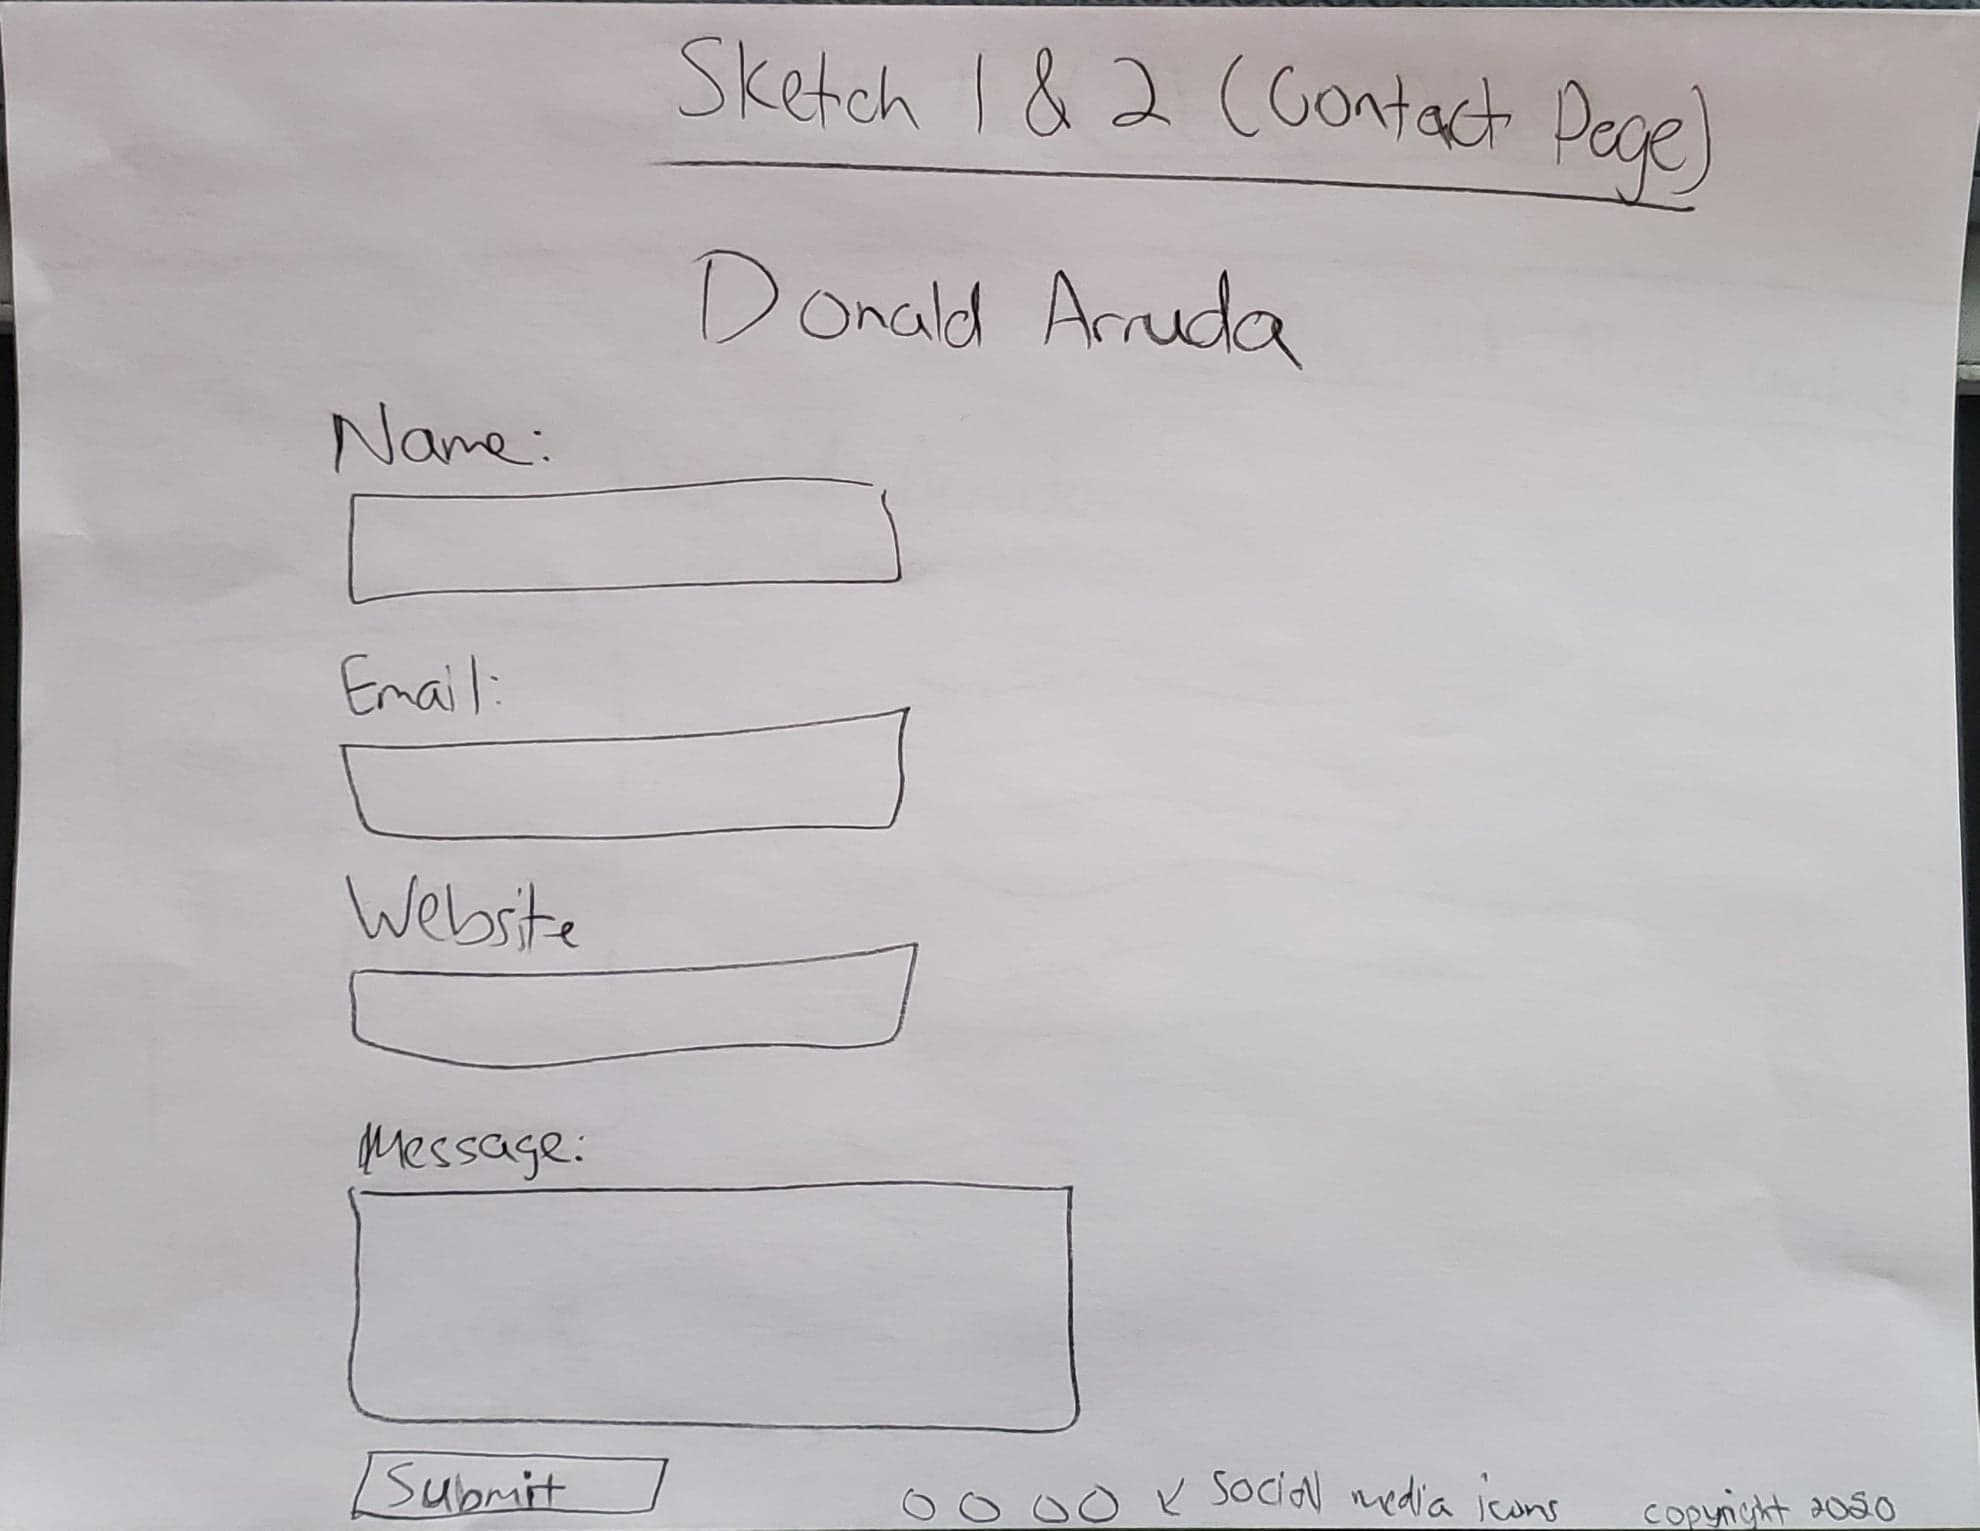 Sketch 1 & 2 (Contact Page)
Donald Arruda
Name:
Email:
Website
Message:
Submit
social media icons
copyright 2020